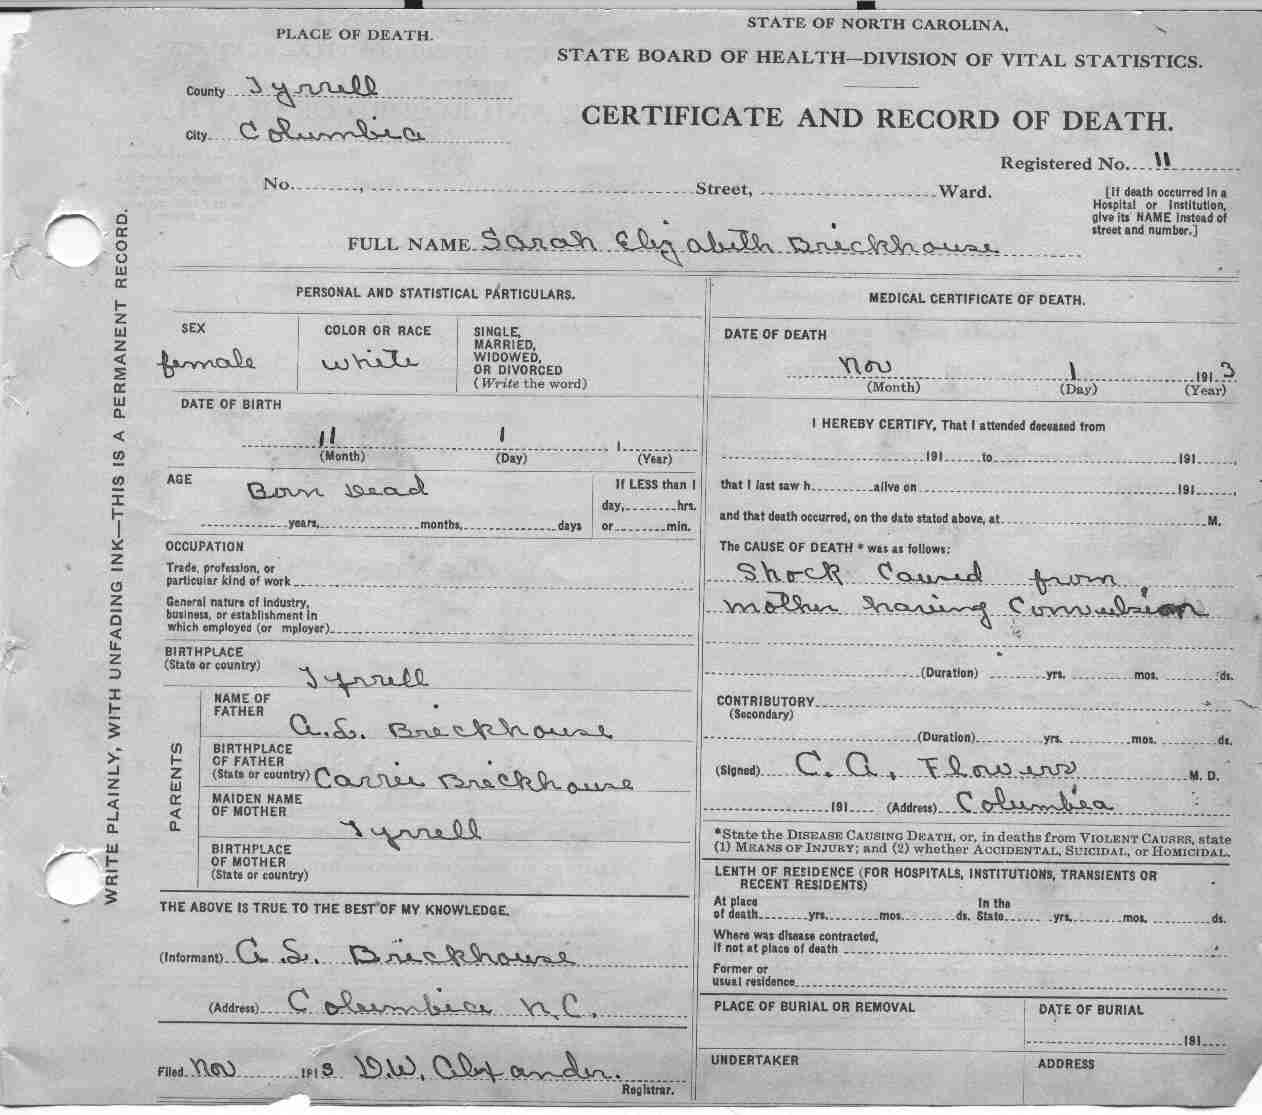 PLACE OF DEATH.
STATE OF NORTH CAROLINA,
STATE BOARD OF HEALTH—DIVISION OF VITAL STATISTICS.
County Tyrrell
City Columbia
CERTIFICATE AND RECORD OF DEATH.
Registered No. 11
No. , Street, Ward.
[If death occurred in a Hospital or Institution, give its NAME instead of street and number.]
FULL NAME Sarah Elizabeth Brickhouse
WRITE PLAINLY, WITH UNFADING INK—THIS IS A PERMANENT RECORD.
PERSONAL AND STATISTICAL PARTICULARS.
SEX
female
COLOR OR RACE
white
SINGLE,
MARRIED,
WIDOWED,
OR DIVORCED
(Write the word)
DATE OF BIRTH
11 1 1
(Month) (Day) (Year)
AGE
Born Dead
years, months, days
If LESS than 1
day, hrs.
or min.
OCCUPATION
Trade, profession, or
particular kind of work
General nature of industry,
business, or establishment in
which employed (or mployer)
BIRTHPLACE
(State or country)
Tyrrell
PARENTS
NAME OF
FATHER
A.S. Brickhouse
BIRTHPLACE
OF FATHER
(State or country) Carrie Brickhouse
MAIDEN NAME
OF MOTHER
Tyrrell
BIRTHPLACE
OF MOTHER
(State or country)
THE ABOVE IS TRUE TO THE BEST OF MY KNOWLEDGE.
(Informant) A.S. Brickhouse
(Address) Columbia N.C.
Filed Nov 1913 D.W. Alexander.
Registrar.
MEDICAL CERTIFICATE OF DEATH.
DATE OF DEATH
Nov 1 1913
(Month) (Day) (Year)
I HEREBY CERTIFY, That I attended deceased from
191 to 191 ,
that I last saw h alive on 191 ,
and that death occurred, on the date stated above, at M.
The CAUSE OF DEATH * was as follows:
Shock Caused from
mother having Convulsion
(Duration) yrs. mos. ds.
CONTRIBUTORY
(Secondary)
(Duration) yrs. mos. ds.
(Signed) C. A. Flowers M. D.
191 (Address) Columbia
*State the DISEASE CAUSING DEATH, or, in deaths from VIOLENT CAUSES, state
(1) MEANS OF INJURY; and (2) whether ACCIDENTAL, SUICIDAL, or HOMICIDAL.
LENTH OF RESIDENCE (FOR HOSPITALS, INSTITUTIONS, TRANSIENTS OR
RECENT RESIDENTS)
At place In the
of death yrs. mos. ds. State yrs. mos. ds.
Where was disease contracted,
if not at place of death
Former or
usual residence
PLACE OF BURIAL OR REMOVAL
DATE OF BURIAL
191
UNDERTAKER
ADDRESS